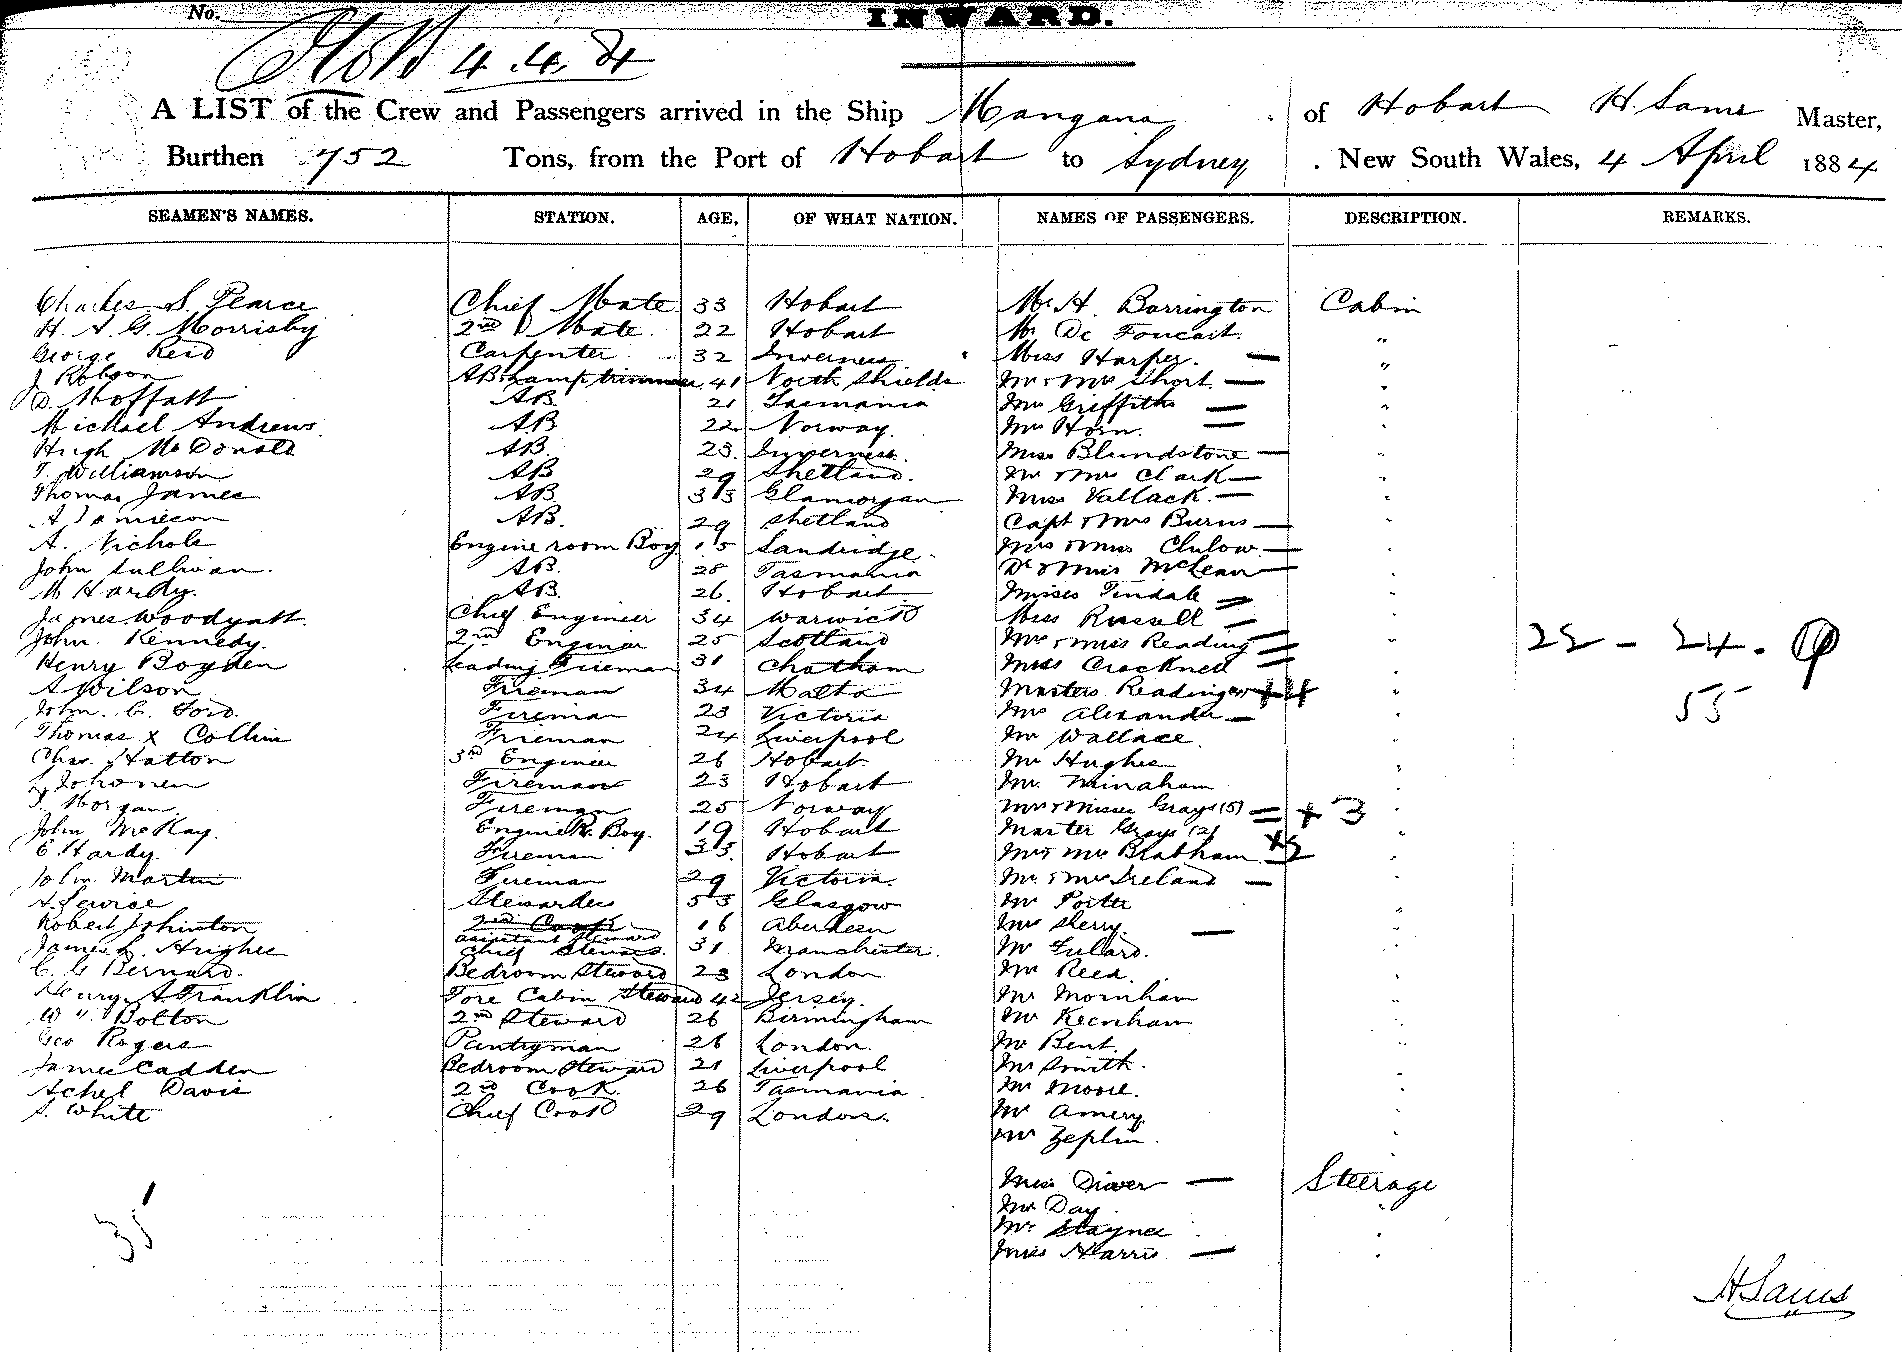 No.
INWARD.
4.4.84
A LIST of the Crew and Passengers arrived in the Ship Mangana of Hobart H. Sams Master,
Burthen 752 Tons, from the Port of Hobart to Sydney . New South Wales, 4 April 1884
SEAMEN'S NAMES. STATION. AGE, OF WHAT NATION. NAMES OF PASSENGERS. DESCRIPTION. REMARKS.
Charles S. Pearce Chief Mate 33 Hobart Mr. H. Barrington Cabin
H. A. G. Morrisby 2nd Mate. 22 Hobart Mr De Foucart. "
George Reid Carpenter 32 Inverness Miss Harper. — "
J Robson AB Lamptrimmer 41 North Shields Mr & Mrs Short — "
D. Moffatt AB 21 Tasmania Mrs Griffiths — "
Michael Andrews. AB 22 Norway. Mrs Horn. — "
Hugh McDonald AB. 23. Inverness. Miss Blundstone — "
T. Williamson AB 29 Shetland. Mr & Mrs Clark — "
Thomas James AB 33 Glamorgan Miss Vallack. — "
A Jamieson AB. 29 Shetland Capt & Mrs Burns — "
A. Nichols Engine room Boy 15 Sandridge. Mrs & Miss Clulow. — "
John Sullivan. AB. 28 Tasmania Dr & Miss McLean — "
M Hardy. AB. 26. Hobart Misses Tindale = "
James Woodyatt. Chief Engineer 34 Warwick Miss Russell — "
John Kennedy. 2nd Engineer 25 Scotland Mrs & Miss Reading = " 22 - 24.
Henry Boyden Leading Fireman 31 Chatham Miss Cracknell — "
A Wilson Fireman 34 Malta Masters Reading + 4 " 55
John. C. Ford. Fireman 23 Victoria Mrs Alexander — "
Thomas x Collins Fireman 24 Liverpool Mr Wallace. "
Chas. Hatton 3rd Engineer 26 Hobart. Mr Hughes "
Fireman 23 Hobart Mr. Minaham "
J. Morgan Fireman 25 Norway Mrs & Misses Grays (5) = + 3 "
John McKay. Engine R. Boy. 19 Hobart Master Grays (2) "
E. Hardy. Fireman 33. Hobart Mr & Mrs Brabham +2 "
Wm. Martin Fireman 29 Victoria. Mr. & Mrs Ireland — "
Stewardess 53 Glasgow Mr Porter "
Robert Johnston 2nd Cook assistant Steward 16 Aberdeen Mrs Sherry. — "
James L. Hughes Chief Steward. 31 Manchester. Mr "
C. G Bernard. Bedroom Steward 23 London Mr Reed. "
Henry A Franklin Fore Cabin Steward 42 Jersey. Mr Mornham "
W H. Bolton 2nd Steward 26 Birmingham Mr Keenham "
Geo Rogers Pantryman 26 London. Mr Bent. "
James Cadden Bedroom Steward 21 Liverpool Mr Smith. "
Achel Davis 2nd Cook 26 Tasmania Mr Moore. "
S. White Chief Cook 29 London. Mr Amery "
Mr Zeplin. "
Miss Diver — Steerage
35 Mr Day. "
Mr. Staynes "
Miss Harris — "
H Sams